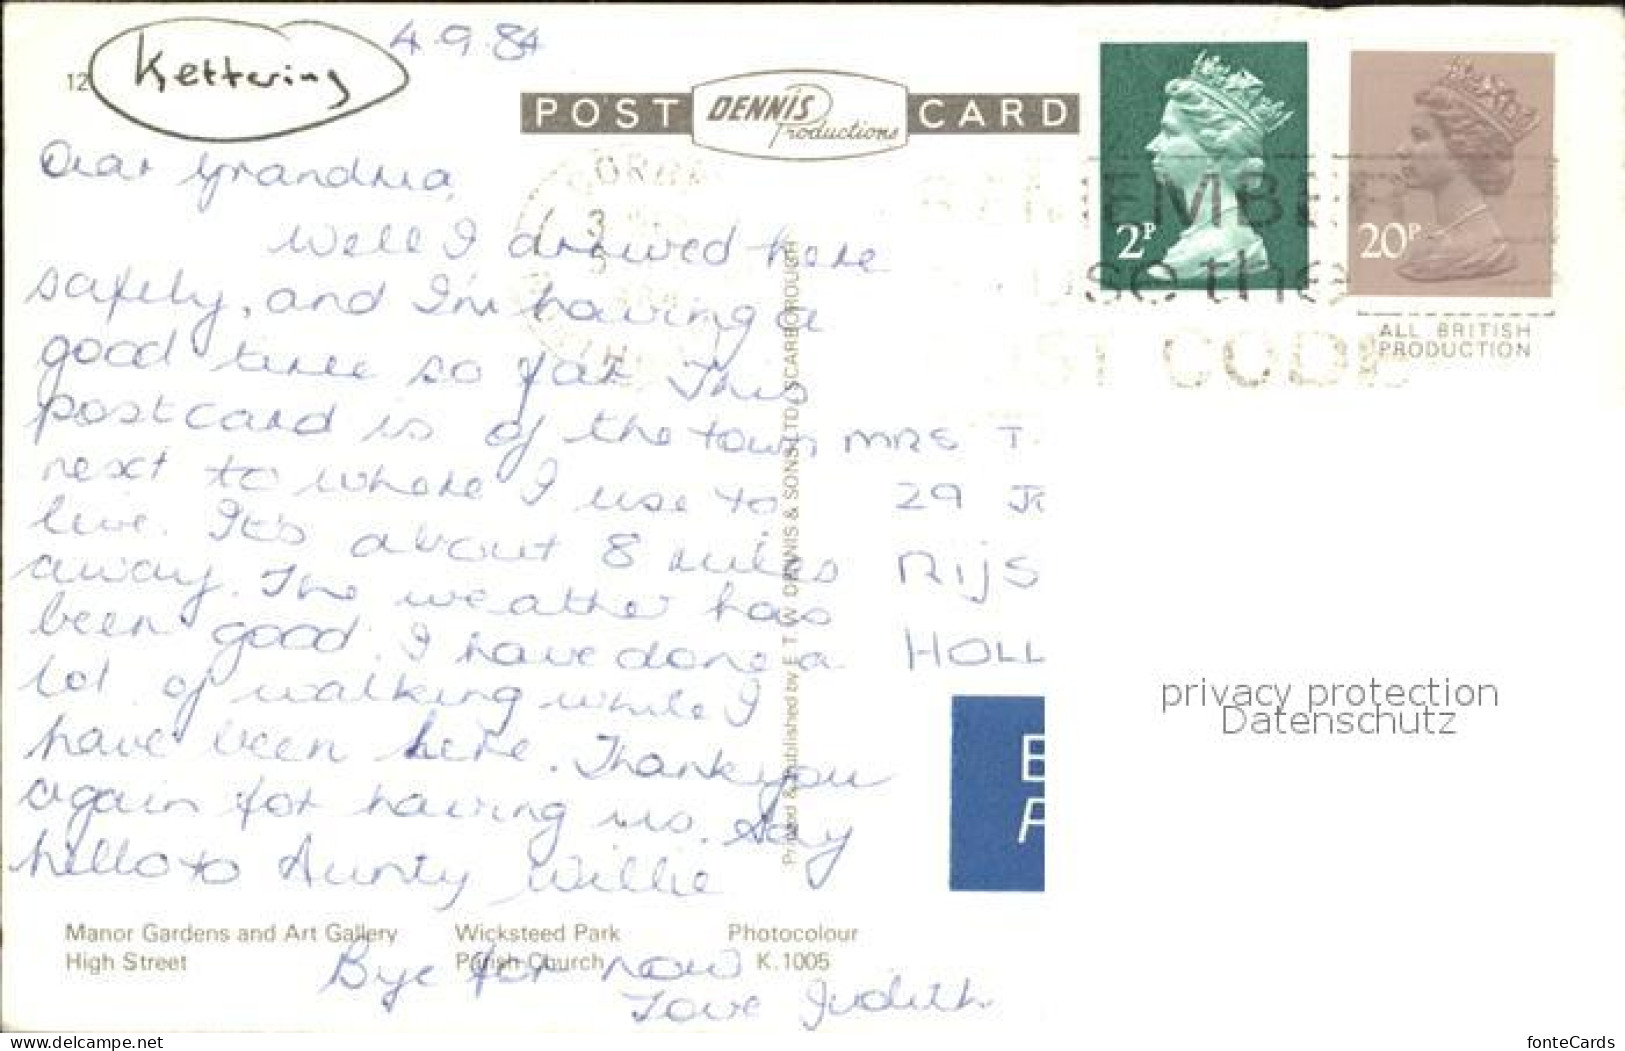 Kettering
4.9.84
12
POST DENNIS Productions CARD
2P
20P
ALL BRITISH
PRODUCTION
REMEMBER
use the
POST CODE
Dear Grandma,
Well I arrived here
safely, and I'm having a
good time so far. This
postcard is of the town
next to where I use to
live. It's about 8 miles
away. The weather has
been good. I have done a
lot of walking while I
have been here. Thankyou
again for having us. Say
hello to Aunty Willie
Bye for now
Love Judith
MRS T.
29
RIJS
HOLL
Printed & Published by E. T. W. DENNIS & SONS LTD., SCARBOROUGH
Manor Gardens and Art Gallery Wicksteed Park Photocolour
High Street Parish Church K.1005
privacy protection
Datenschutz
www.delcampe.net
fonteCards